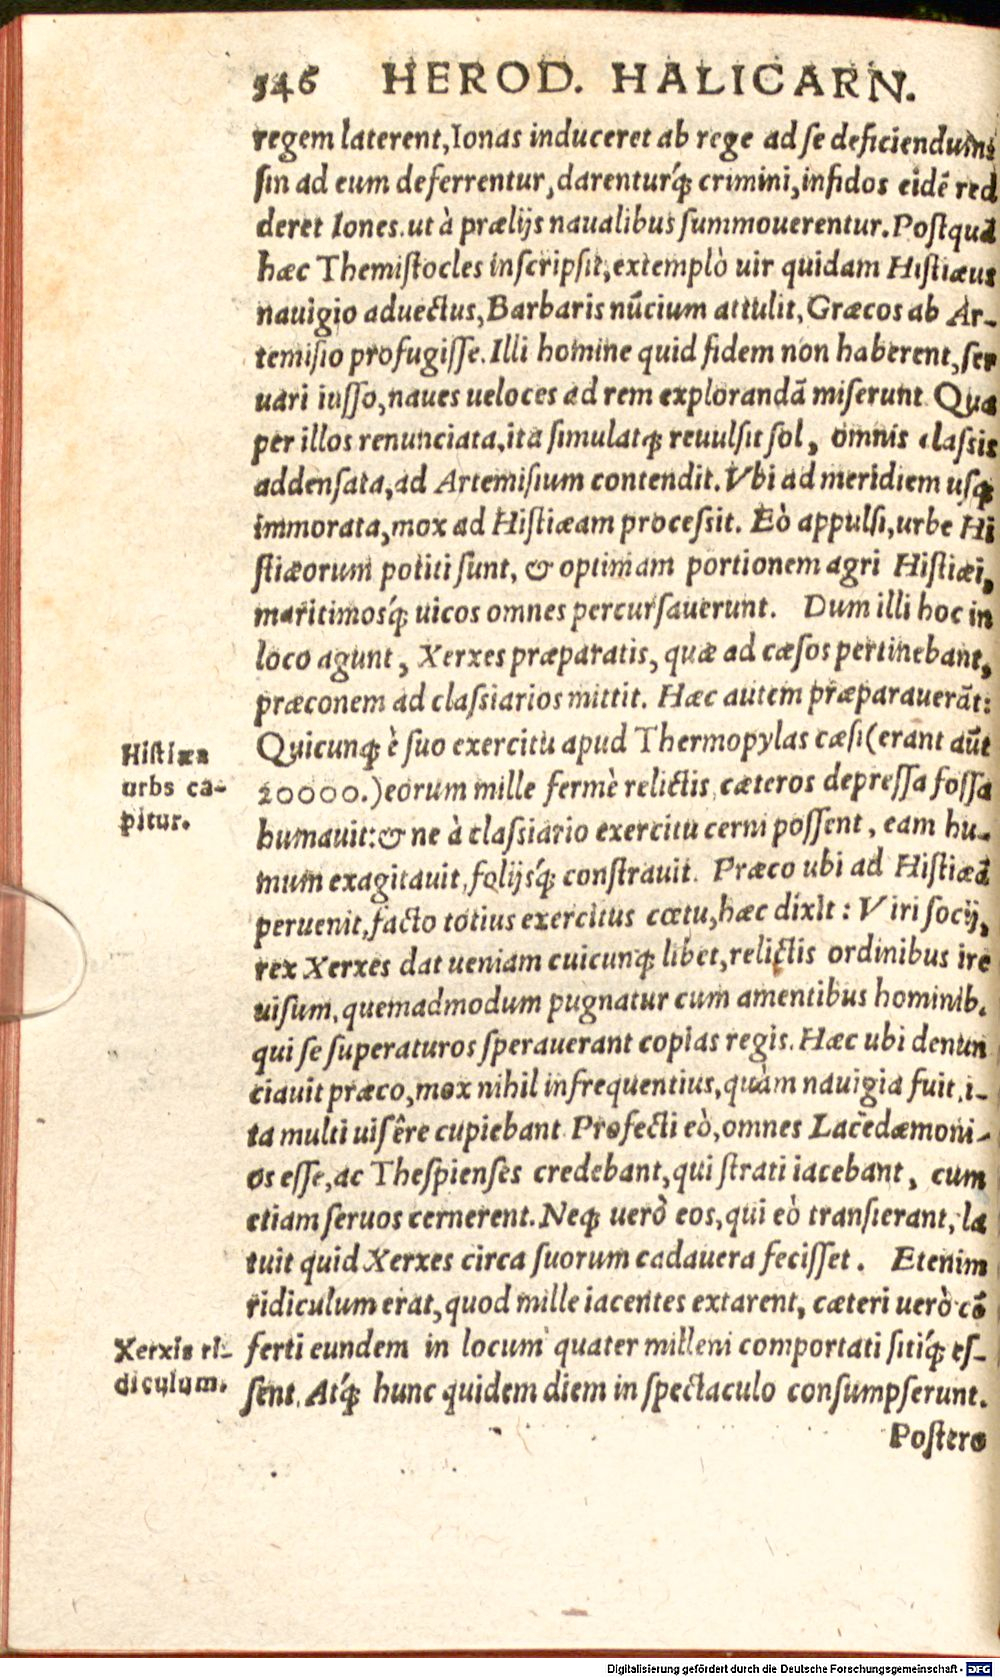 546 HEROD. HALICARN.
regem laterent, Ionas induceret ab rege ad se deficiendum:
sin ad eum deferrentur, darenturq́; crimini, infidos eidē red
deret Iones. ut à prælijs naualibus summouerentur. Postquā
hæc Themistocles inscripsit, extemplò uir quidam Histiæus
nauigio aduectus, Barbaris nūcium attulit, Græcos ab Ar-
temisio profugisse. Illi homine quid fidem non haberent, ser
uari iusso, naues ueloces ad rem explorandā miserunt Qua
per illos renunciata, ita simulatq; reuulsit sol, omnis classis
addensata, ad Artemisium contendit. Vbi ad meridiem usq;
immorata, mox ad Histiæam processit. Eò appulsi, urbe Hi
stiæorum potiti sunt, & optimam portionem agri Histiæi,
maritimosq́; uicos omnes percursauerunt. Dum illi hoc in
loco agunt, Xerxes præparatis, quæ ad cæsos pertinebant,
præconem ad classiarios mittit. Hæc autem præparauerāt:
Histiæa
urbs ca-
pitur.
Quicunq; è suo exercitu apud Thermopylas cæsi (erant aūt
20000.) eorum mille fermè relictis, cæteros depressa fossa
humauit: & ne à classiario exercitu cerni possent, eam hu-
mum exagitauit, folijsq́; constrauit. Præco ubi ad Histiæā
peruenit, facto totius exercitus cœtu, hæc dixit: Viri socij,
rex Xerxes dat ueniam cuicunq; libet, relictis ordinibus ire
uisum, quemadmodum pugnatur cum amentibus hominib.
qui se superaturos sperauerant copias regis. Hæc ubi denun
ciauit præco, mox nihil infrequentius, quàm nauigia fuit, i-
ta multi uisêre cupiebant Profecti eò, omnes Lacedæmoni-
os esse, ac Thespienses credebant, qui strati iacebant, cum
etiam seruos cernerent. Neq; uerò eos, qui eò transierant, la
tuit quid Xerxes circa suorum cadauera fecisset. Etenim
ridiculum erat, quod mille iacentes extarent, cæteri uerò cō
Xerxis ri-
diculum.
ferti eundem in locum quater milleni comportati sitiq́; es-
sent. Atq́; hunc quidem diem in spectaculo consumpserunt.
Postero
Digitalisierung gefördert durch die Deutsche Forschungsgemeinschaft - DFG